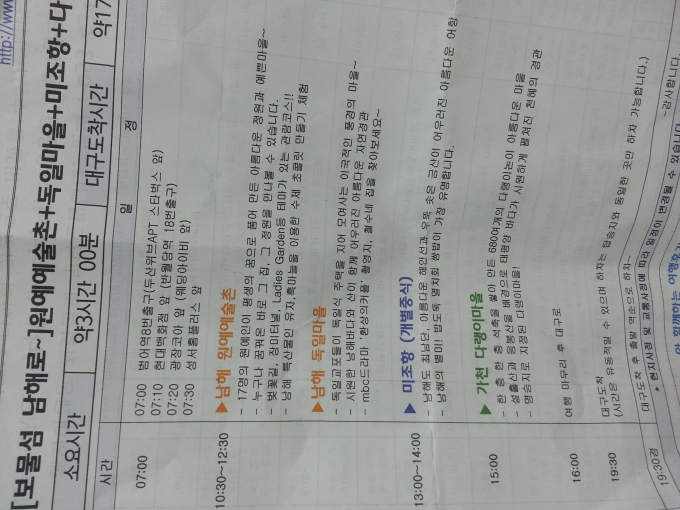 http://www
[보물섬 남해로~]원예예술촌+독일마을+미조항+다
소요시간 약3시간 00분 대구도착시간 약17
시간 일 정
07:00
07:00 범어역8번출구(두산위브APT 스타벅스 앞)
07:10 현대백화점 앞 (반월당역 18번출구)
07:20 광장코아 앞 (웨딩아이비 앞)
07:30 성서홈플러스 앞
10:30~12:30
▶남해 원예예술촌
- 17명의 원예인이 평생의 꿈으로 품어 만든 아름다운 정원과 예쁜마을~
- 누구나 꿈꿔온 바로 그 집, 그 정원을 만나볼 수 있습니다.
- 벚꽃길, 장미터널, Ladies Garden등 테마가 있는 관람코스!!
- 남해 특산물인 유자,흑마늘을 이용한 수제 초콜릿 만들기 체험
▶남해 독일마을
- 독일교포들이 독일식 주택을 지어 모여사는 이국적인 풍경의 마을~
- 시원한 남해바다와 산이 함께 어우러진 아름다운 자연경관
- mbc드라마 '환상의커플' 촬영지, 철수네 집을 찾아보세요~
13:00~14:00
▶ 미조항 (개별중식)
- 남해도 최남단, 아름다운 해안선과 우뚝 솟은 금산이 어우러진 아름다운 어항
- 남해의 별미! 밥도둑 멸치회 쌈밥이 가장 유명합니다.
15:00
▶ 가천 다랭이마을
- 한 층 한 층 석축을 쌓아 만든 680여개의 다랭이논이 아름다운 마을
- 설흘산과 응봉산을 배경으로 태평양 바다가 시원하게 펼쳐진 천혜의 경관
- 명승지로 지정된 다랭이마을!
16:00 여행 마무리 후 대구로
19:30 대구도착
(시간은 유동적일 수 있으며 하차는 탑승지와 동일한 곳만 하차 가능합니다.)
19:30경 대구도착 후 출발 역순으로 하차~ ~감사합니다.
* 현지사정 및 교통사정에 따라 일정이 변경될 수 있습니다
와 함께하는 여행